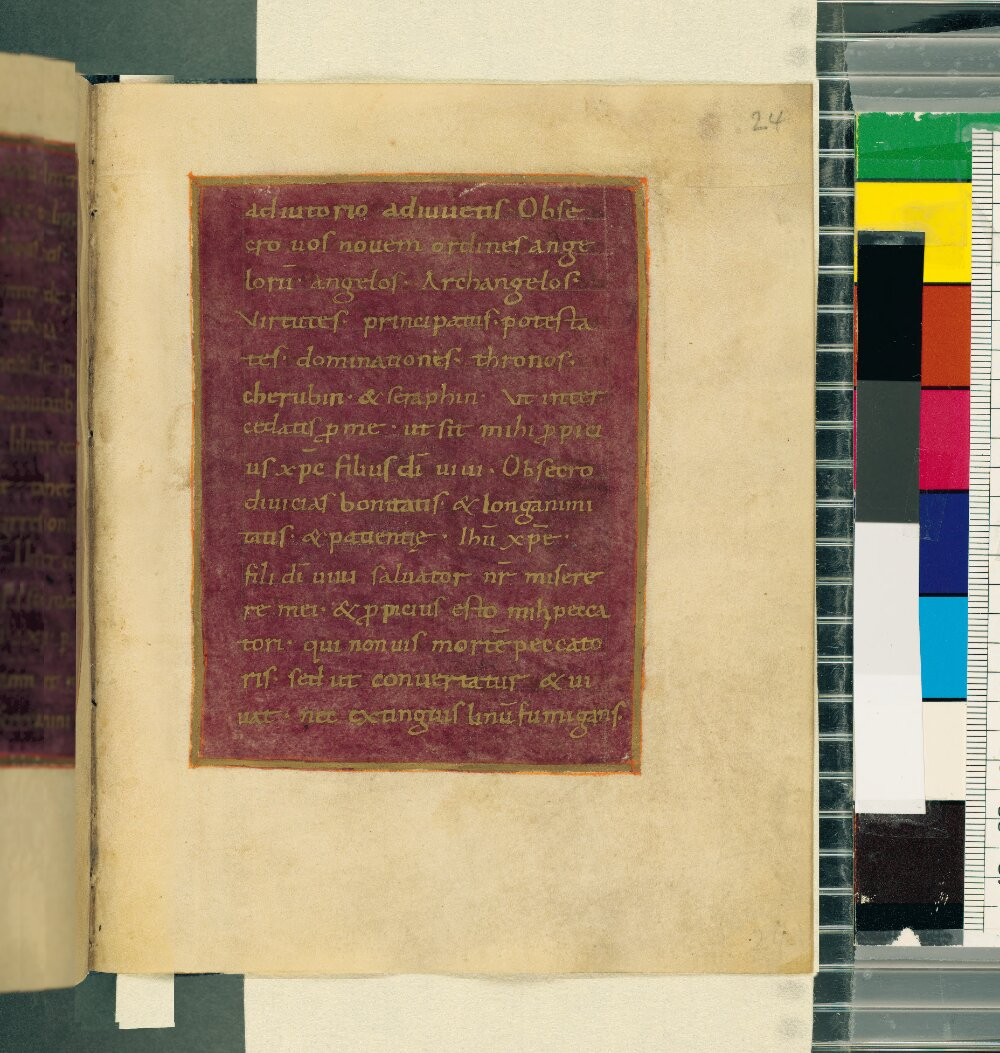 24
adiutorio adiuuetis· Obse
cro uos nouem ordines ange
lorū· angelos· Archangelos·
Virtutes· principatus· potesta
tes· dominationis· thronos·
cherubin· & seraphin· Vt inter
cedatis ꝑ me· ut sit mihi ꝓpici
us xp̄c filius dī uiui· Obsecro
diuicias bonitatis & longanimi
tatis· & patientię· Ihū xp̄e·
fili dī uiui saluator nr̄ misere
re mei· & ꝓpicius esto mihi pecca
tori· qui non uis mortē peccato
ris· sed ut conuertatur & ui
uat· nec extinguis linū fumigans·